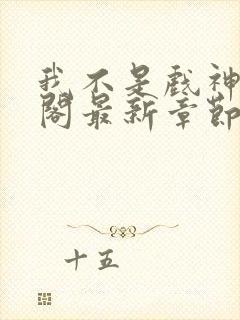 我不是戏神
阁最新章節
十五